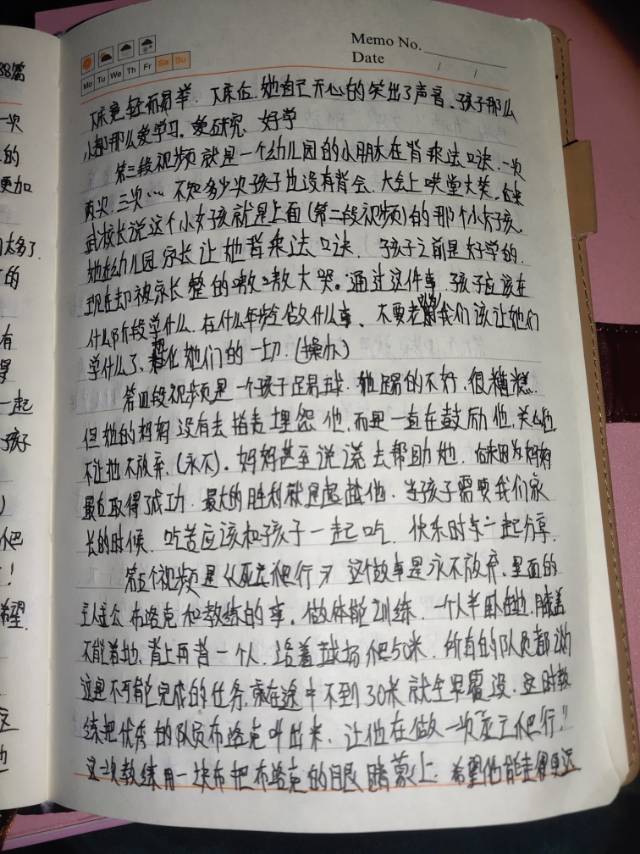 88篇
一次
的
更加
太多了
的
有
得
一起
孩子
)
爬
!
希望
这
边
Memo No.
Date / /
Mo Tu We Th Fr Sa Su
下床竟轻而易举.下床后.她自己开心的笑出了声音.孩子那么
小都那么爱学习.爱研究.好学
第三段视频就是一个幼儿园的小朋友在背乘法口诀.一次
两次.三次…不知多少次孩子也没有背会.大会上哄堂大笑.后来
武校长说这个小女孩就是上面(第二段视频)的那个小女孩.
她在幼儿园家长让她背乘法口诀.孩子之前是好学的.
现在却被家长整的嗷嗷大哭。通过这件事.孩子应该在
什么阶段学什么.在什么年龄做什么事、不要老 我们该让她们
学什么了. 她们的一切.(操办)
第四段视频是一个孩子踢球.他踢的不好.很糟糕.
但他的妈妈没有去指责埋怨他.而是一直在鼓励他.关心他
不让他不放弃.(永不).妈妈甚至说谎去帮助他.后来因为妈妈
最后取得了成功.最大的胜利就是 他.当孩子需要我们家
长的时候.吃苦应该和孩子一起吃.快乐时与一起分享.
第五个视频是《死亡爬行》这个故事是永不放弃.里面的
主人公 布洛克和教练的事.做体能训练.一个人半卧在地.膝盖
不能着地.背上再背一个人.沿着球场爬50米.所有的队员都说
这是不可能完成的任务.就在途中不到30米就全军覆没.这时教
练把优秀的队员布洛克叫出来.让他在做一次死亡爬行!!
这一次教练用一块布把布洛克的眼睛蒙上.希望他能走得更远